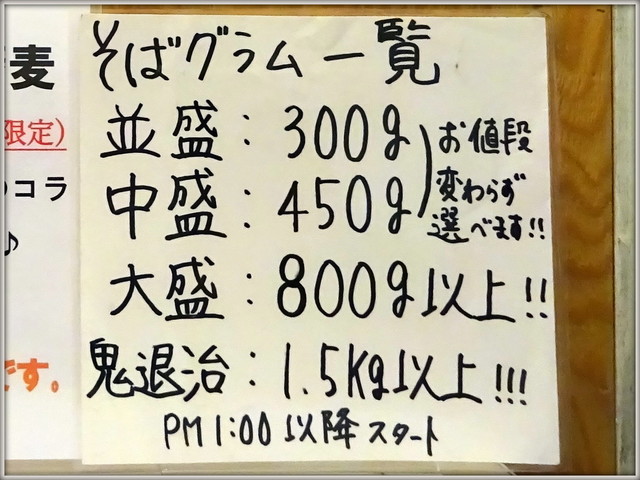 そばグラム一覧
並盛：300g
中盛：450g
お値段
変わらず
選べます!!
大盛：800g以上!!
鬼退治：1.5Kg以上!!!
PM1:00以降スタート
麦
限定）
コラ
♪
です。